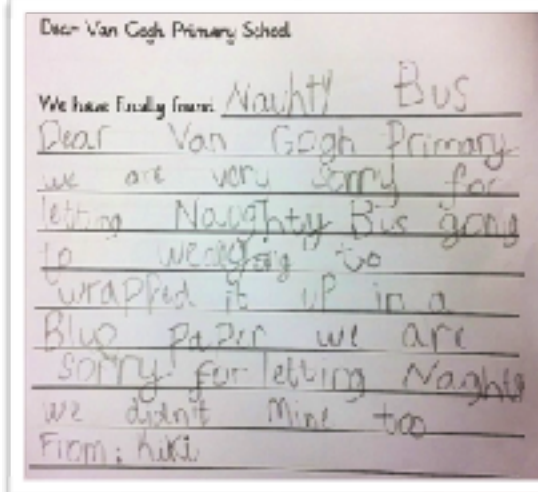 Dear Van Gogh Primary School
We have finally found Nauhty Bus
Dear Van Gogh Primary
we are very sorry for
letting Naughty Bus gong
to
wrapped it up in a
Blue paper we are
sorry for letting Naghty
we didn't Mine too
From: Kiki